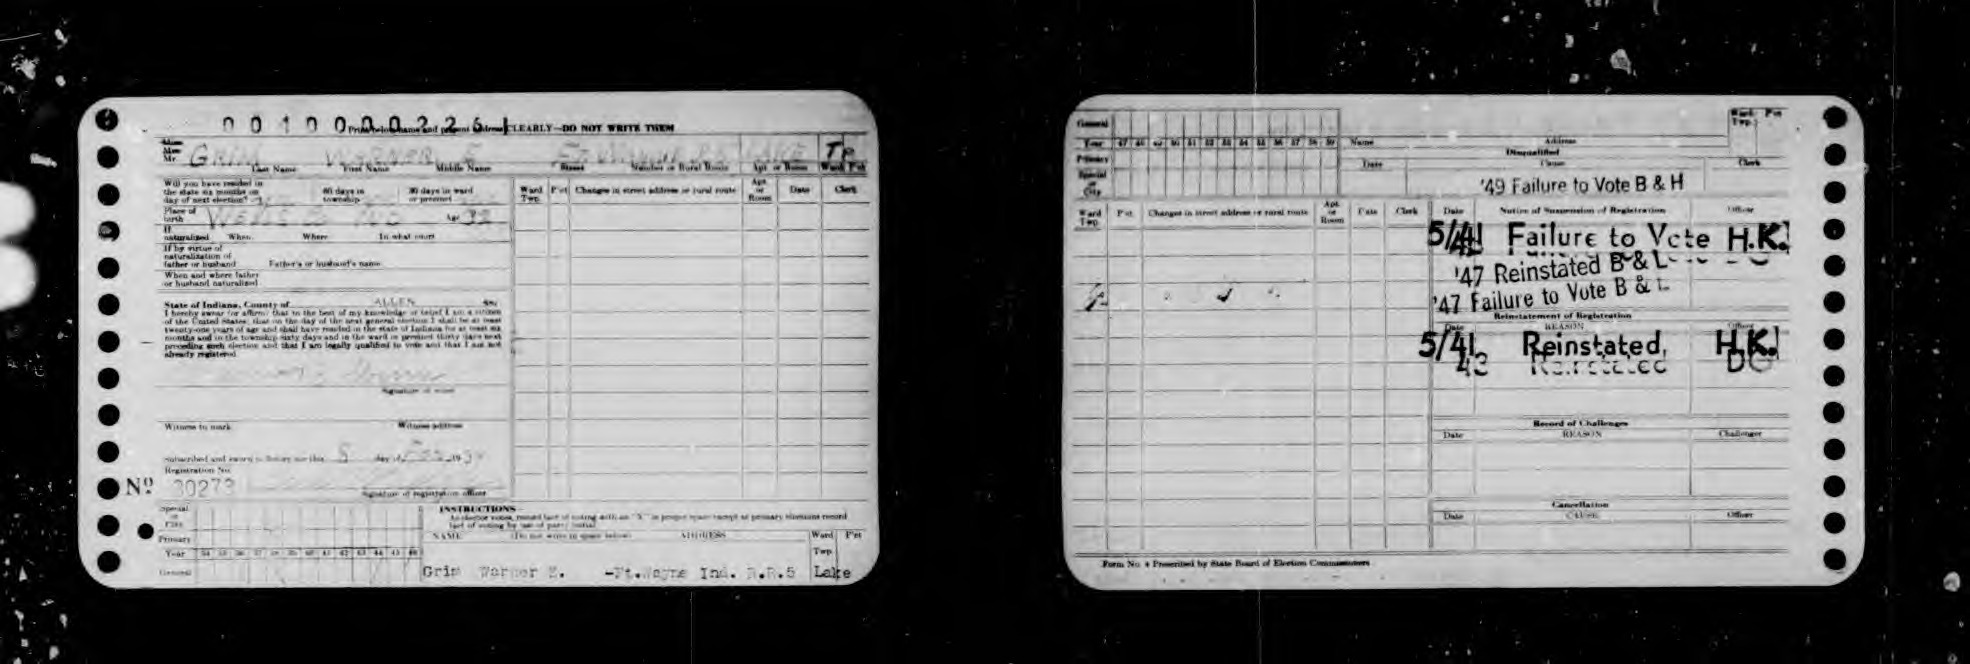 0010000226
Print below name and present address CLEARLY—DO NOT WRITE THEM
Miss
Mrs.
Mr. GRIM WARNER E FT WAYNE R5 LAKE TP
Last Name First Name Middle Name Street Number or Rural Route Apt. or Room Ward P'ct
Will you have resided in the state six months on day of next election? 60 days in township 30 days in ward or precinct
Ward Twp. P'ct Changes in street address or rural route Apt. or Room Date Clerk
Place of birth WELLS CO IND Age 32
If naturalized When Where In what court
If by virtue of naturalization of father or husband Father's or husband's name
When and where father or husband naturalized
State of Indiana, County of ALLEN ss:
I hereby swear (or affirm) that to the best of my knowledge or belief I am a citizen
of the United States; that on the day of the next general election I shall be at least
twenty-one years of age and shall have resided in the state of Indiana for at least six
months and in the township sixty days and in the ward or precinct thirty days next
preceding such election and that I am legally qualified to vote and that I am not
already registered
Signature of voter
Witness to mark Witness address
Subscribed and sworn to before me this 8 day of 19
Registration No.
No. 30273
Signature of registration officer
Special or City
Primary
Year 34 35 36 37 38 39 40 41 42 43 44 45 46
General
INSTRUCTIONS—
As elector votes, record fact of voting with an "X" in proper space except at primary elections record
fact of voting by use of party initial
NAME (Do not write in space below) ADDRESS Ward P'ct
Twp.
Grim Warner E. -Ft.Wayne Ind. R.R.5 Lake
General
Year 47 48 49 50 51 52 53 54 55 56 57 58 59
Primary
Special or City
Name Address Ward Twp. P'ct
Disqualified
Date Cause Clerk
'49 Failure to Vote B & H
Ward Twp. P'ct Changes in street address or rural route Apt. or Room Date Clerk
Date Notice of Suspension of Registration Officer
5/41 Failure to Vote H.K.
'47 Reinstated B & L
'47 Failure to Vote B & L
Reinstatement of Registration
Date REASON Officer
5/41 Reinstated, H.K.
43 Reinstated DG
Record of Challenges
Date REASON Challenger
Cancellation
Date CAUSE Officer
Form No. 4 Prescribed by State Board of Election Commissioners